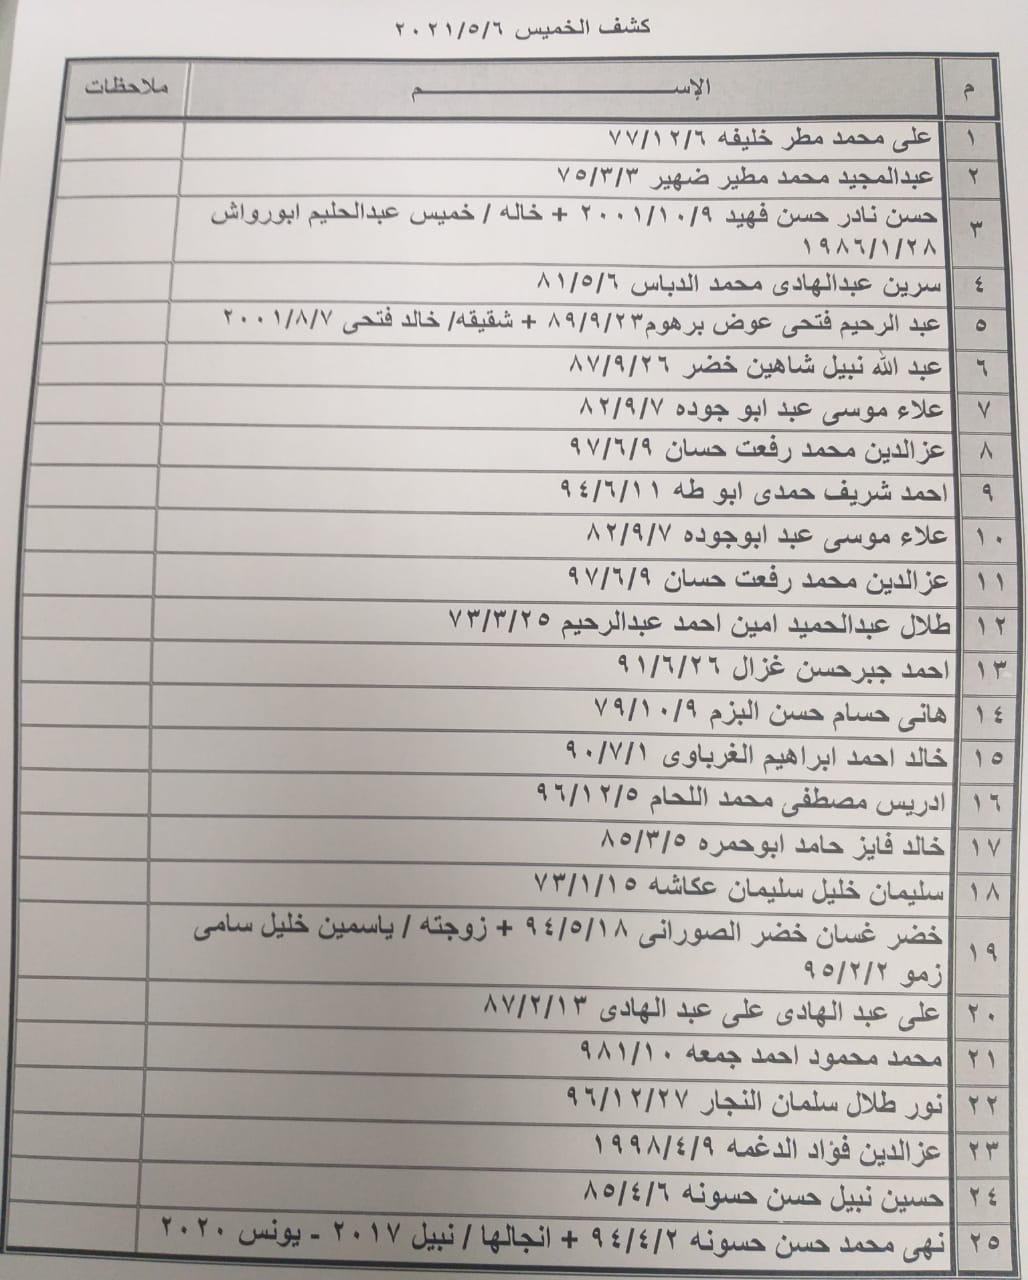 كشف الخميس ٢٠٢١/٥/٦
م الإســـــــــم ملاحظات
١ على محمد مطر خليفه ٧٧/١٢/٦
٢ عبدالمجيد محمد مطير ضهير ٧٥/٣/٣
٣ حسن نادر حسن فهيد ٢٠٠١/١٠/٩ + خاله / خميس عبدالحليم ابورواش
١٩٨٦/١/٢٨
٤ سرين عبدالهادى محمد الدباس ٨١/٥/٦
٥ عبد الرحيم فتحى عوض برهوم٨٩/٩/٢٣ + شقيقه/ خالد فتحى ٢٠٠١/٨/٧
٦ عبد الله نبيل شاهين خضر ٨٧/٩/٢٦
٧ علاء موسى عبد ابو جوده ٨٢/٩/٧
٨ عزالدين محمد رفعت حسان ٩٧/٦/٩
٩ احمد شريف حمدى ابو طه ٩٤/٦/١١
١٠ علاء موسى عبد ابوجوده ٨٢/٩/٧
١١ عزالدين محمد رفعت حسان ٩٧/٦/٩
١٢ طلال عبدالحميد امين احمد عبدالرحيم ٧٣/٣/٢٥
١٣ احمد جبرحسن غزال ٩١/٦/٢٦
١٤ هانى حسام حسن البزم ٧٩/١٠/٩
١٥ خالد احمد ابراهيم الغرباوى ٩٠/٧/١
١٦ ادريس مصطفى محمد اللحام ٩٦/١٢/٥
١٧ خالد فايز حامد ابوحمره ٨٥/٣/٥
١٨ سليمان خليل سليمان عكاشه ٧٣/١/١٥
١٩ خضر غسان خضر الصورانى ٩٤/٥/١٨ + زوجته / ياسمين خليل سامى
زمو ٩٥/٢/٢
٢٠ على عبد الهادى على عبد الهادى ٨٧/٢/١٣
٢١ محمد محمود احمد جمعه ٩٨١/١٠
٢٢ نور طلال سلمان النجار ٩٦/١٢/٢٧
٢٣ عزالدين فؤاد الدغمه ١٩٩٨/٤/٩
٢٤ حسين نبيل حسن حسونه ٨٥/٤/٦
٢٥ نهى محمد حسن حسونه ٩٤/٤/٢ + انجالها / نبيل ٢٠١٧ - يونس ٢٠٢٠